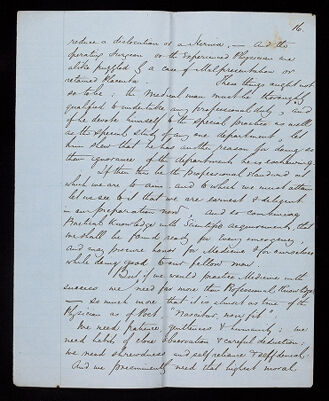 16.
reduce a dislocation or a Hernia; — And the
operating Surgeon or the Experienced Physician are
alike puzzled by a case of Malpresentation or
retained Placenta. These things ought not
so to be: the Medical man must be thoroughly
qualified to undertake any Professional duty, and
if he devote himself to the special practice as well
as the special study of any one department, let
him show that he has another reason for doing so
than ignorance of the departments he is eschewing.
If then this be the Professional standard at
which we are to aim and to which we must attain
let us see to it that we are earnest & diligent
in our preparation now; And so combining
Practical Knowledge with Scientific acquirements, that
we shall be found ready for every emergency,
and may procure honor for Medicine & for ourselves
while doing good to our fellow men.
But if we would practice Medicine with
success we need far more than Professional Knowledge
— so much more that it is almost as true of the
Physician as of Poet "Nascitur, non fit".
We need patience, gentleness & humanity; we
need habits of close observation & careful deduction;
we need shrewdness and self reliance & self denial.
And we preeminently need that highest moral